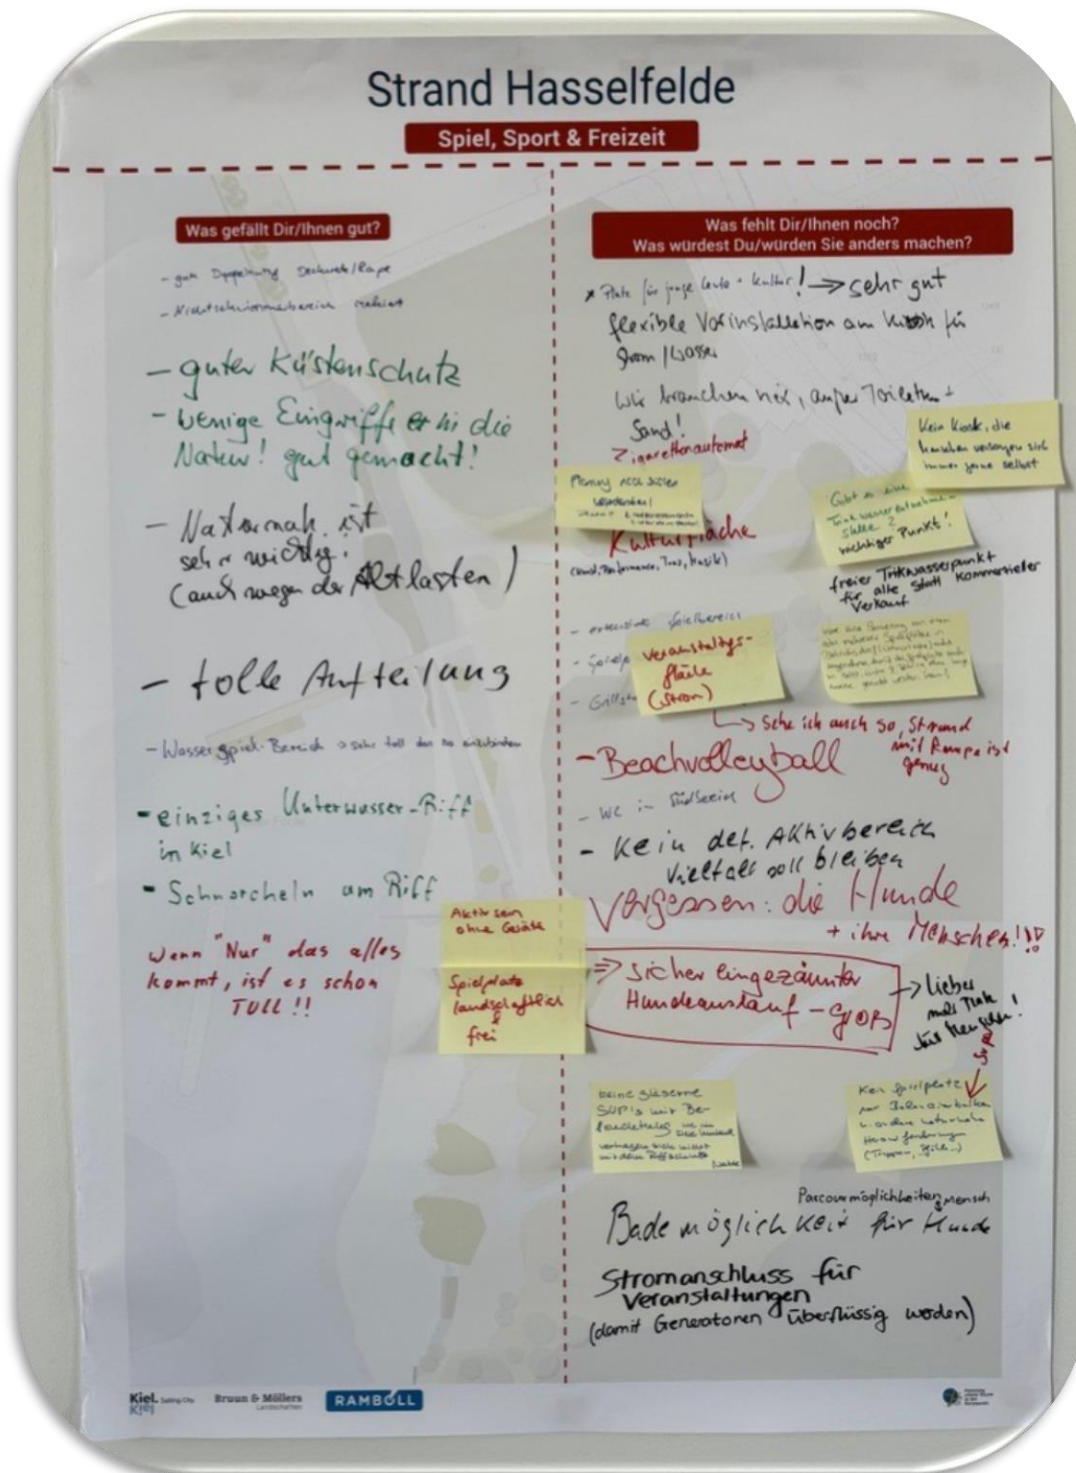 Strand Hasselfelde
Spiel, Sport & Freizeit
Was gefällt Dir/Ihnen gut?
- gute
- Nichtschwimmerbereich
- guter Küstenschutz
- wenige Eingriffe in die
Natur! gut gemacht!
- Naturnah ist
sehr wichtig!
(auch wegen der Altlasten)
- tolle Aufteilung
- Wasserspiel-Bereich sehr toll
- einziges Unterwasser-Riff
in Kiel
- Schnorcheln am Riff
Wenn "Nur" das alles
kommt, ist es schon
TOLL!!
Aktiv sein
ohne Geräte
Spielplatz
landschaftlich
frei
Was fehlt Dir/Ihnen noch?
Was würdest Du/würden Sie anders machen?
* Platz für junge Leute + Kultur! → sehr gut
flexible Vorinstallation am Kiosk für
Strom/Wasser
Wir brauchen nix, außer Toiletten +
Sand!
Zigarettenautomat
Kein Kiosk, die
Menschen versorgen sich
immer gerne selbst
Gibt es eine
Trinkwasserentnahme-
stelle?
wichtiger Punkt!
freier Trikwasserpunkt
für alle statt kommerzieller
Verkauf
Kulturfläche
(Kunst, Performance, Tanz, Musik)
- extensives Spielbereich
Veranstaltgs-
fläche
(Strom)
→ Sehe ich auch so, Strand
mit Rampe ist
genug
- Beachvolleyball
- WC in Südbereich
- Kein def. Aktivbereich
Vielfalt soll bleiben
Vergessen: die Hunde
+ ihre Menschen!!!
⇒ sicher eingezäunter
Hundeauslauf - groß
→ lieber
mehr Platz
für Menschen!
keine gläserne
SUP's mit Be-
leuchtung
Kein Spielplatz
nur Balancierbalken
u. andere naturnahe
Herausforderungen
Parcoursmöglichkeiten Mensch
Bademöglichkeit für Hunde
Stromanschluss für
Veranstaltungen
(damit Generatoren überflüssig werden)
Kiel. Sailing City
Kiel
Bruun & Möllers
Landschaften
RAMBOLL